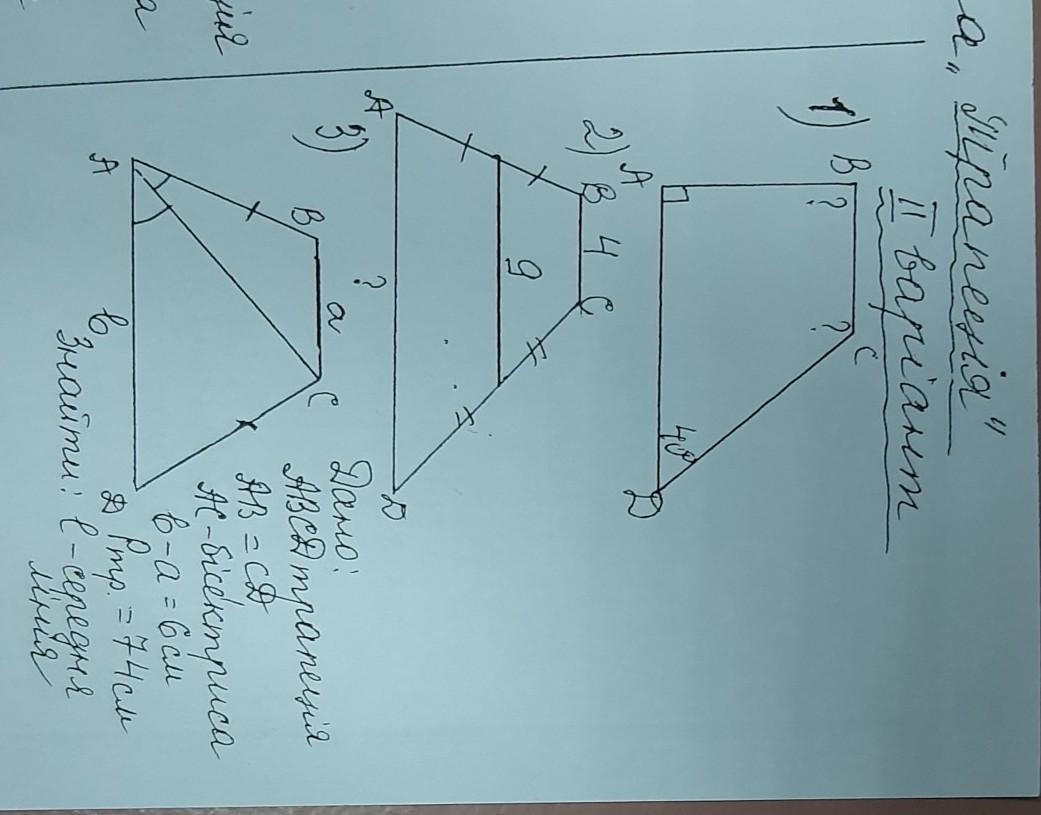 а „Трапеція"
II варіант
1)
B
C
?
?
A
40°
D
2)
B 4 C
9
A
?
D
3)
B
a
C
A
b
D
Дано:
ABCD трапеція
AB = CD
AC - бісектриса
b - a = 6 см
Pтр. = 74 см
Знайти: l - середня
лінія
ція
а